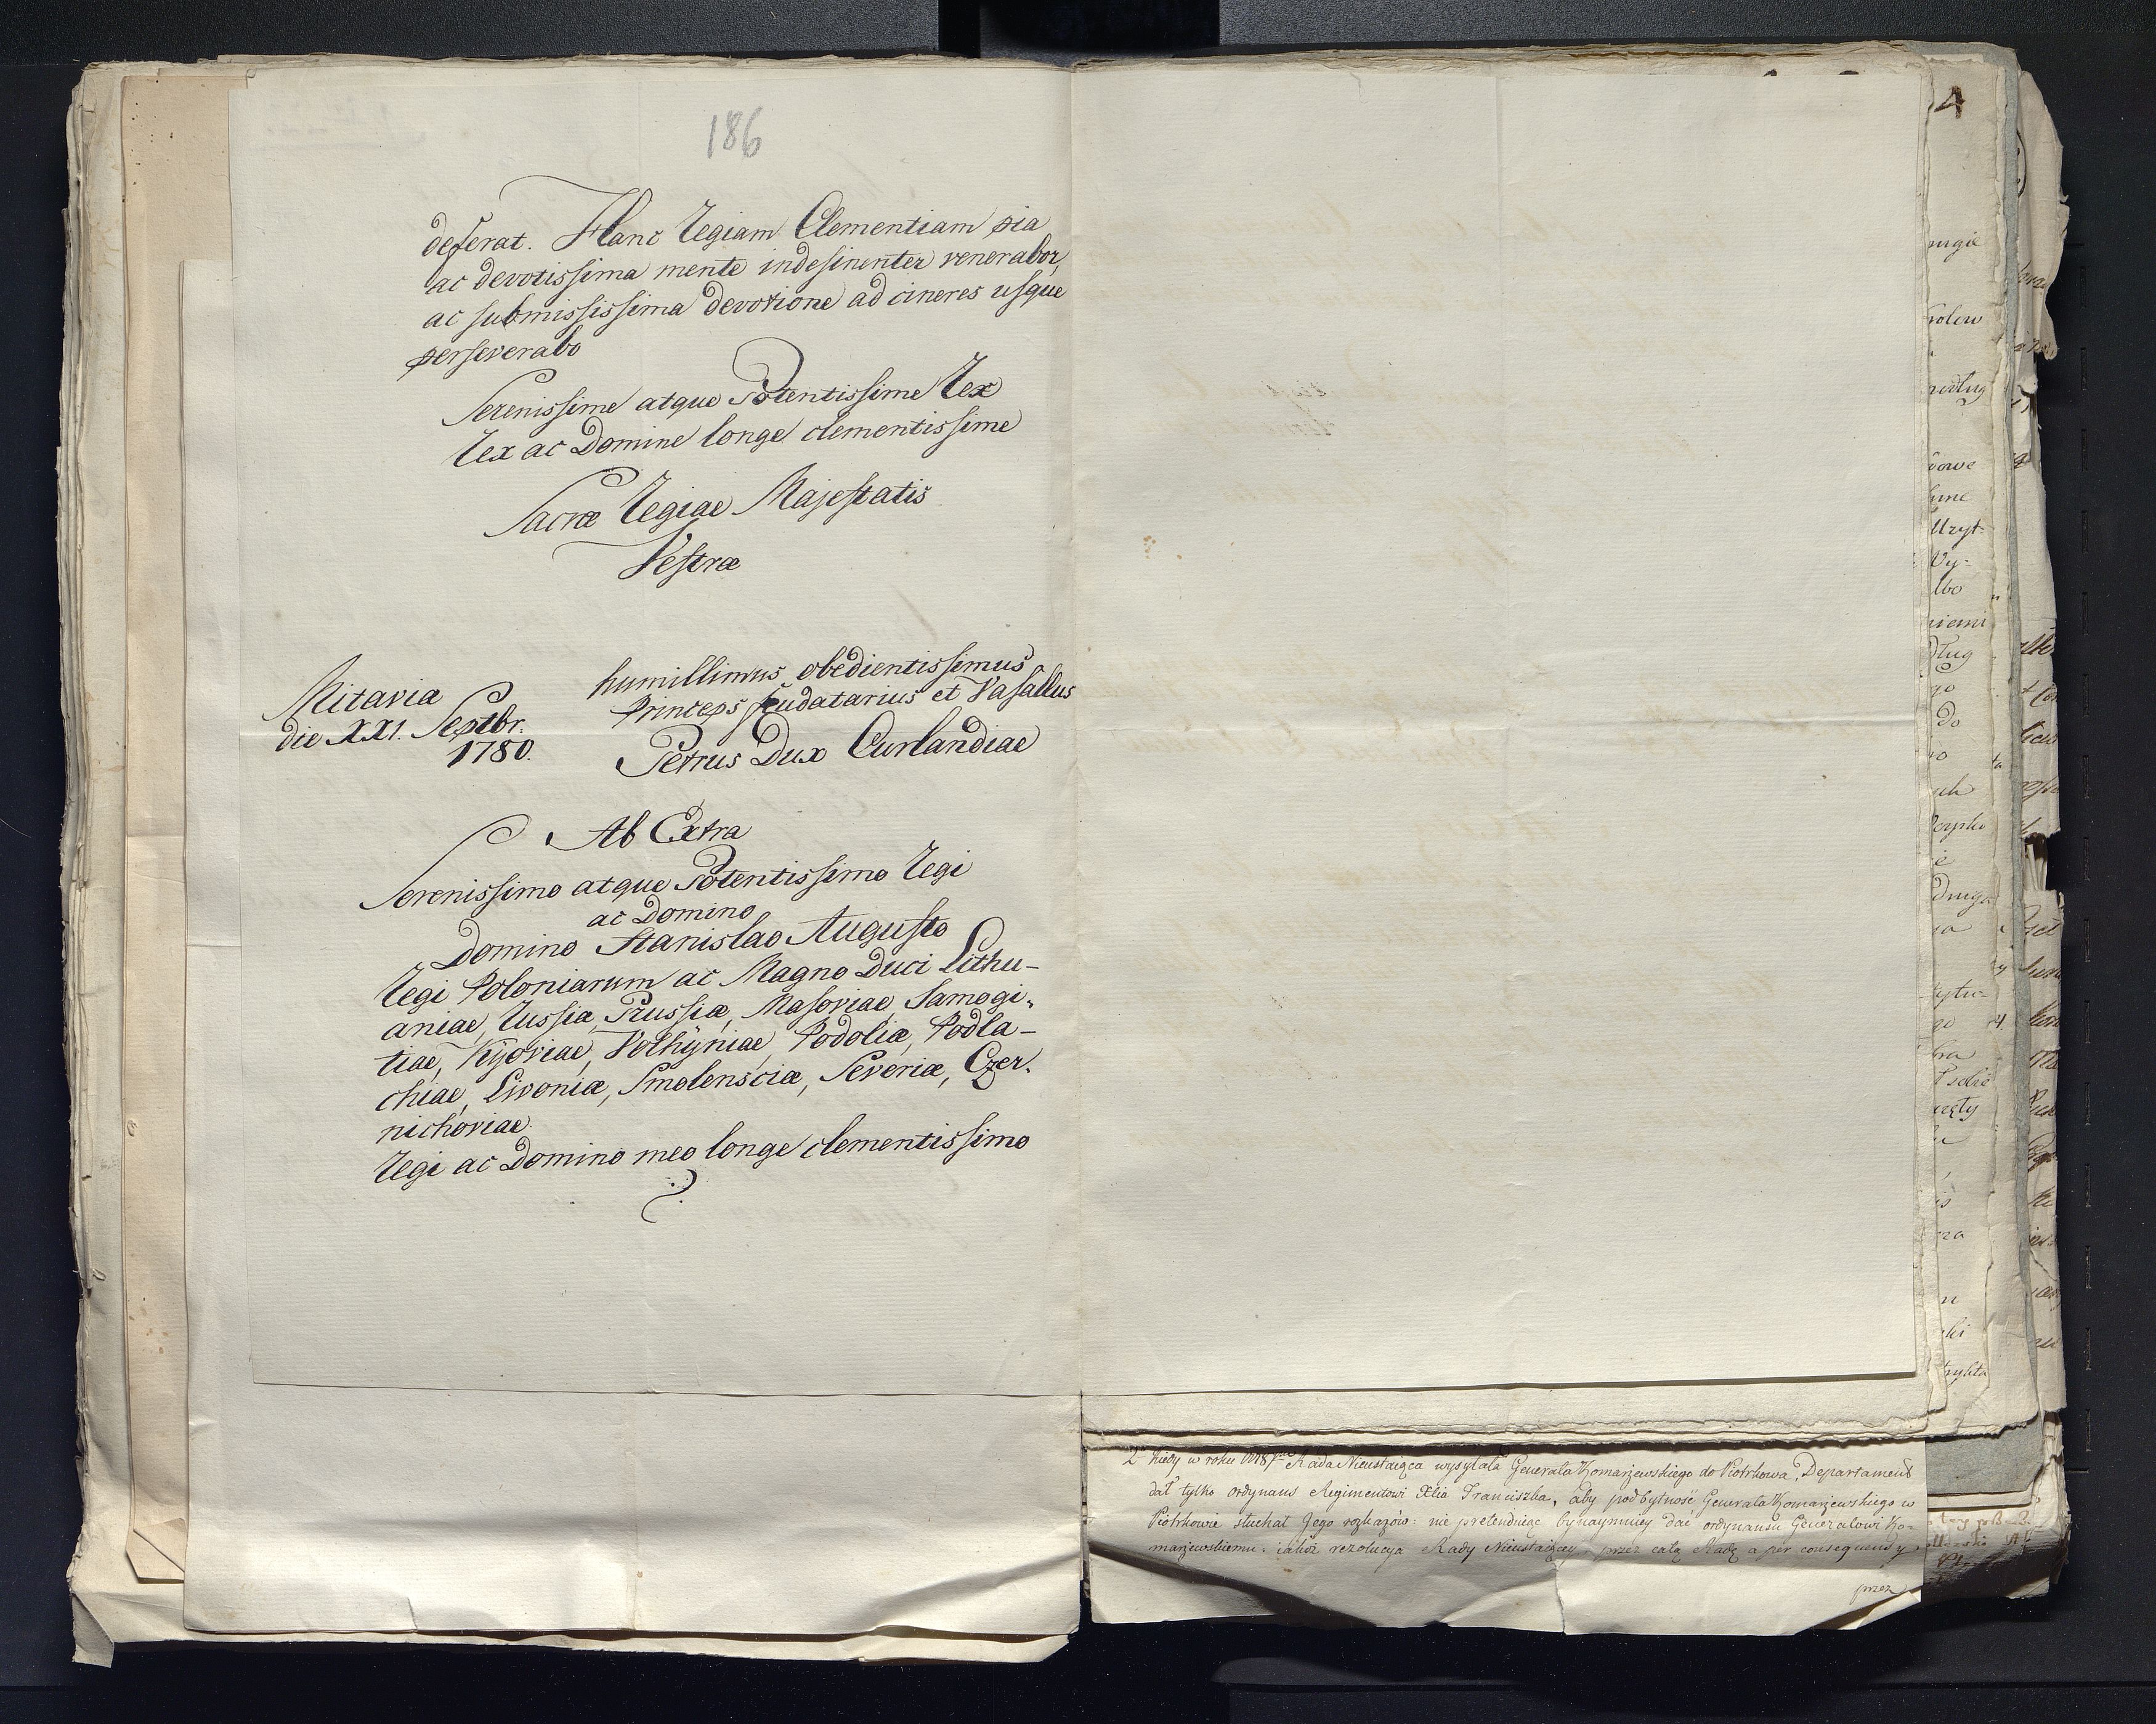 186
deferat. Hanc Regiam Clementiam pia
ac devotissima mente indesinenter venerabor,
ac submississima devotione ad cineres usque
perseverabo
Serenissime atque Potentissime Rex
Rex ac Domine longe clementissime
Sacræ Regiae Majestatis
Vestræ
Mitavia
die XXI. Septbr.
1780.
humillimus obedientissimus
Princeps feudatarius et Vasallus
Petrus Dux Curlandiae
Ab Extra
Serenissimo atque Potentissimo Regi
ac Domino
Domino Stanislao Augusto
Regi Poloniarum ac Magno Duci Lithu-
aniae, Russiæ, Prussiæ, Masoviae, Samogi-
tiae, Kyoviae, Volhyniae, Podoliæ, Podla-
chiae, Livoniæ, Smolensciæ, Severiæ, Czer-
nichoviae.
Regi ac Domino meo longe clementissimo
4
2º Kiedy w roku Rada Nieustaiąca wysyłała Generała Komarzewskiego do Piotrkowa, Departament
dał tylko ordynans Regimentowi Xcia Franciszka, aby pod bytność Generała Komarzewskiego w
Piotrkowie słuchał Jego rozkazów: nie pretenduiąc bynaymniey dać ordynansu Generałowi Ko-
marzewskiemu: iakoż rezolucya Rady Nieustaiącey przez całą Radę a per consequens y
przez